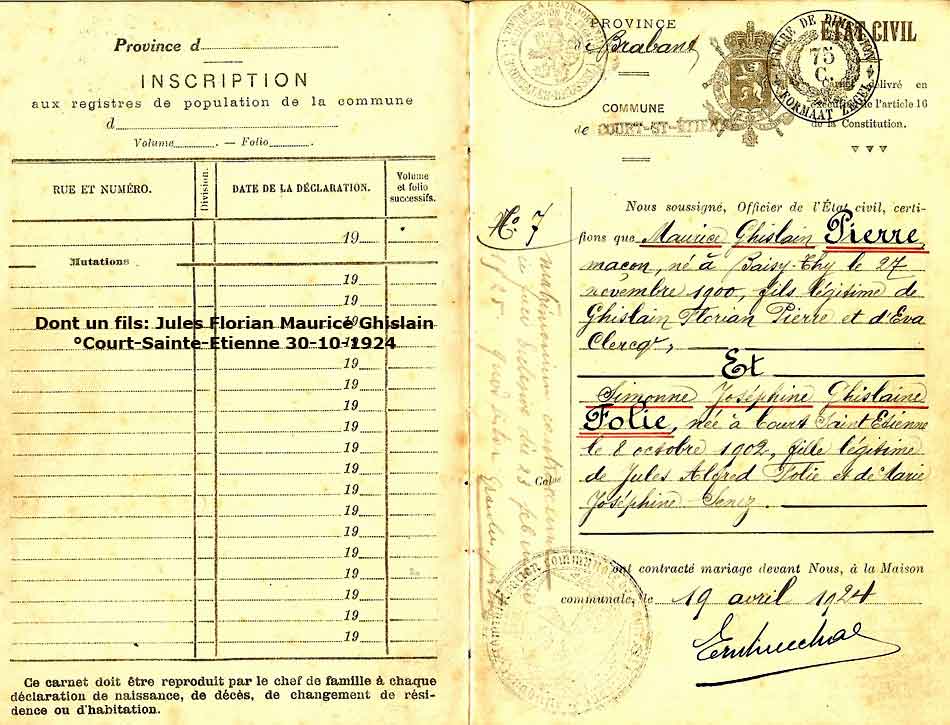 Province d
INSCRIPTION
aux registres de population de la commune
d
Volume — Folio
RUE ET NUMÉRO.
Division.
DATE DE LA DÉCLARATION.
Volume
et folio
successifs.
19
Mutations
19
19
Dont un fils: Jules Florian Maurice Ghislain
°Court-Sainte-Etienne 30-10-1924
19
19
19
19
19
19
19
19
19
Ce carnet doit être reproduit par le chef de famille à chaque
déclaration de naissance, de décès, de changement de rési-
dence ou d'habitation.
PROVINCE
de Brabant
COMMUNE
de COURT-ST-ÉTIENNE
ÉTAT CIVIL
TIMBRE DE DIMENSION
75
C.
FORMAAT ZEGEL
délivré en
exécution de l'article 16
de la Constitution.
No. 7
Nous soussigné, Officier de l'État civil, certi-
fions que Maurice Ghislain Pierre,
maçon, né à Baisy-Thy le 27
novembre 1900, fils légitime de
Ghislain Florian Pierre et d'Eva
Clercq,
Et
Simonne Joséphine Ghislaine
Folie, née à Court Saint Etienne
le 8 octobre 1902, fille légitime
de Jules Alfred Folie et de Marie
Joséphine Senez.
ont contracté mariage devant Nous, à la Maison
communale, le 19 avril 1924